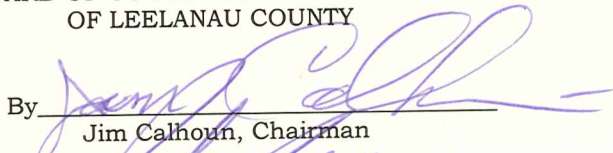 OF LEELANAU COUNTY
By
Jim Calhoun, Chairman